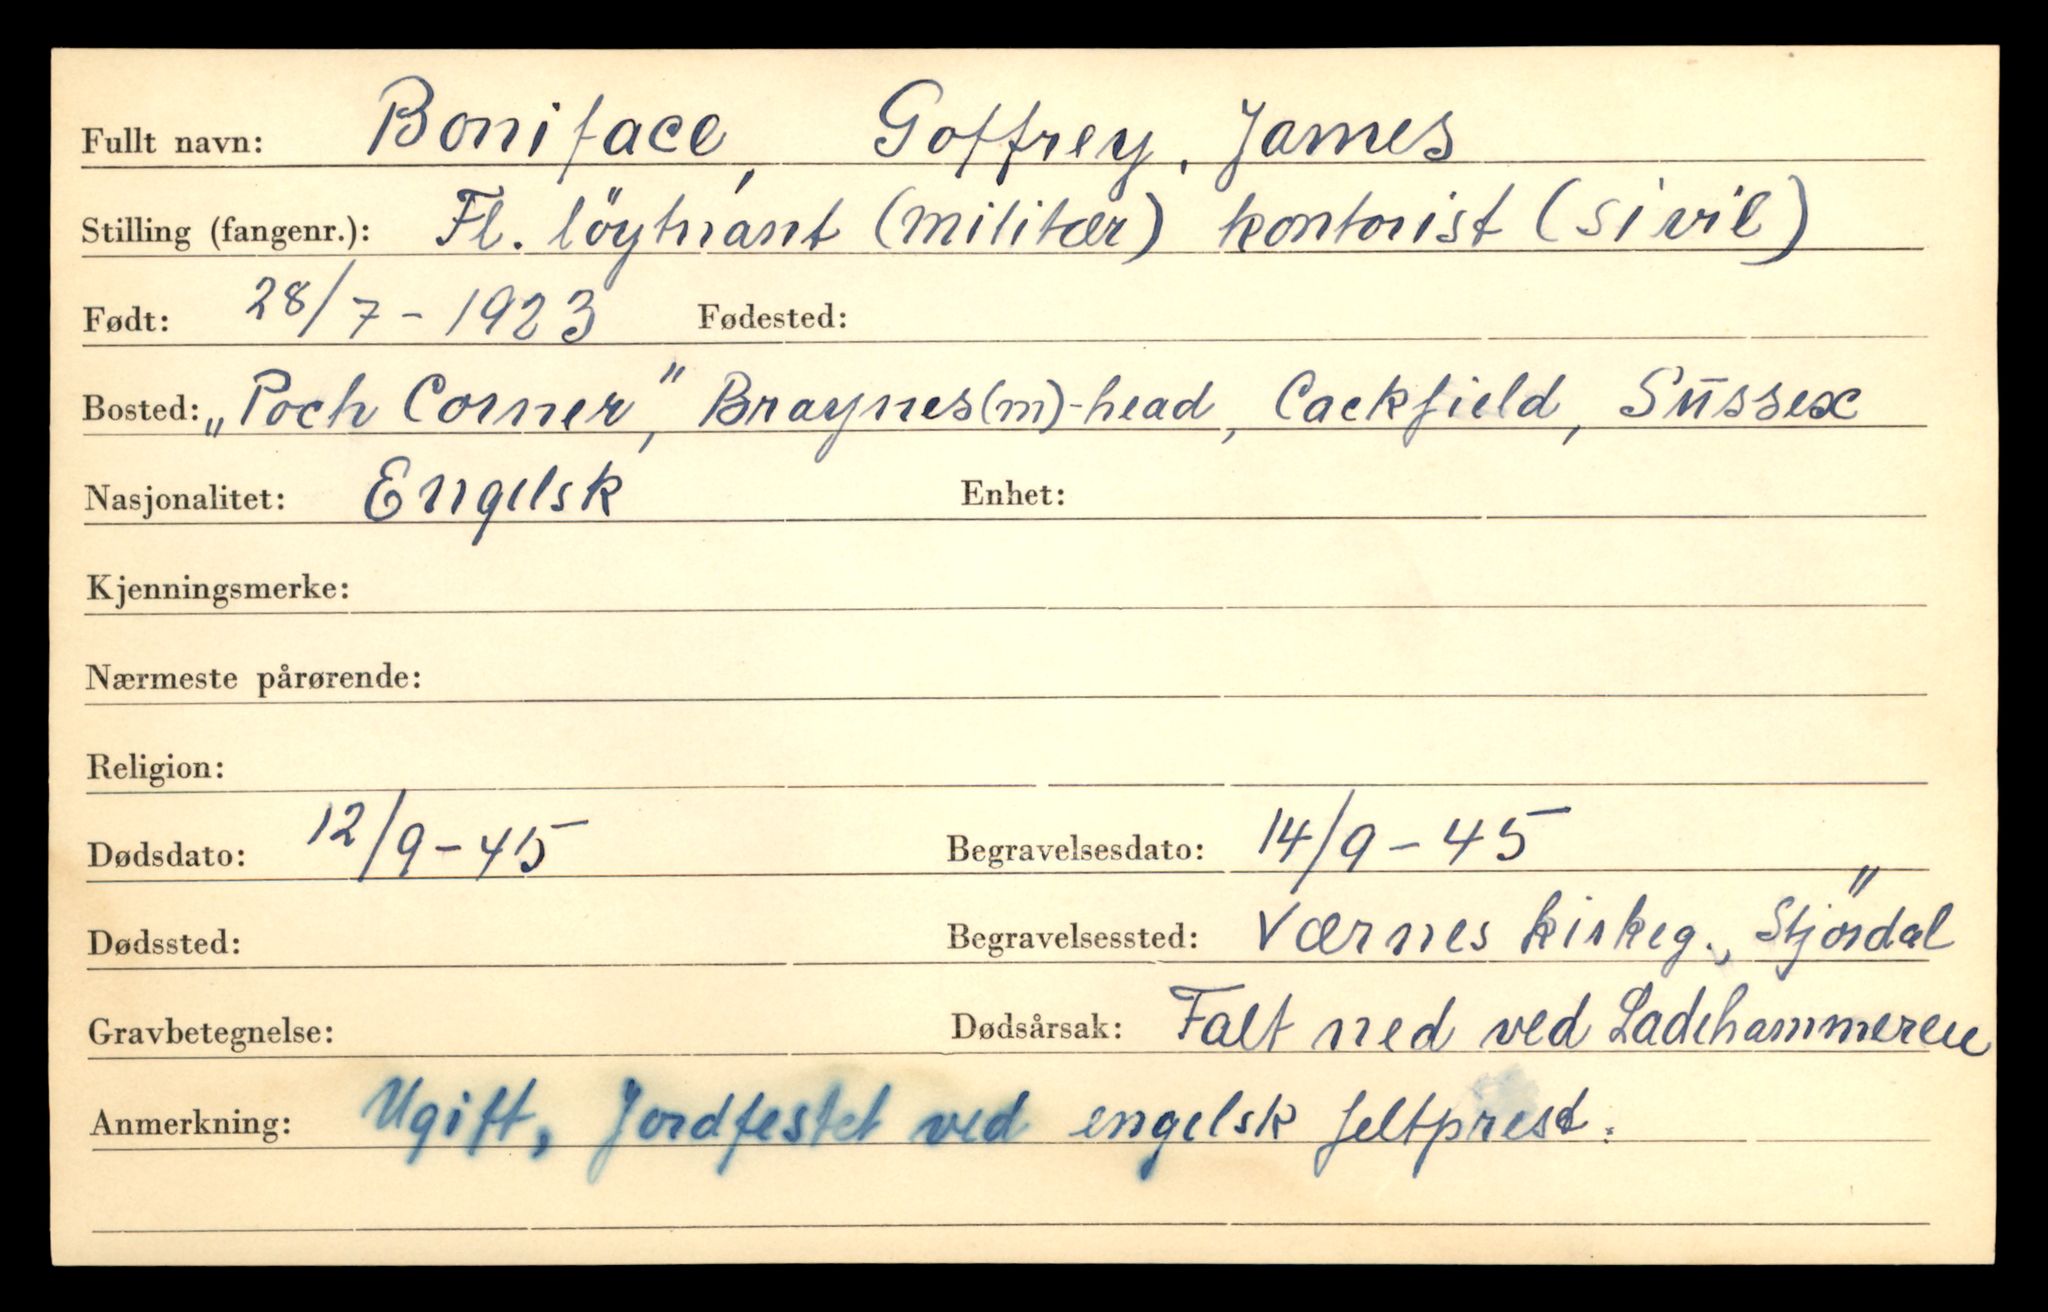 Fullt navn: Boniface, Goffrey, James
Stilling (fangenr.): Fl. löytnant (militær) kontorist (sivil)
Født: 28/7 - 1923 Fødested:
Bosted: „Poch Corner”, Braynes(m)-head, Cackfield, Sussex
Nasjonalitet: Engelsk Enhet:
Kjenningsmerke:
Nærmeste pårørende:
Religion:
Dødsdato: 12/9 - 45 Begravelsesdato: 14/9 - 45
Dødssted: Begravelsessted: Værnes kirkeg., Stjördal
Gravbetegnelse: Dødsårsak: Falt ned ved Ladehammeren
Anmerkning: Ugift, Jordfestet ved engelsk feltprest.